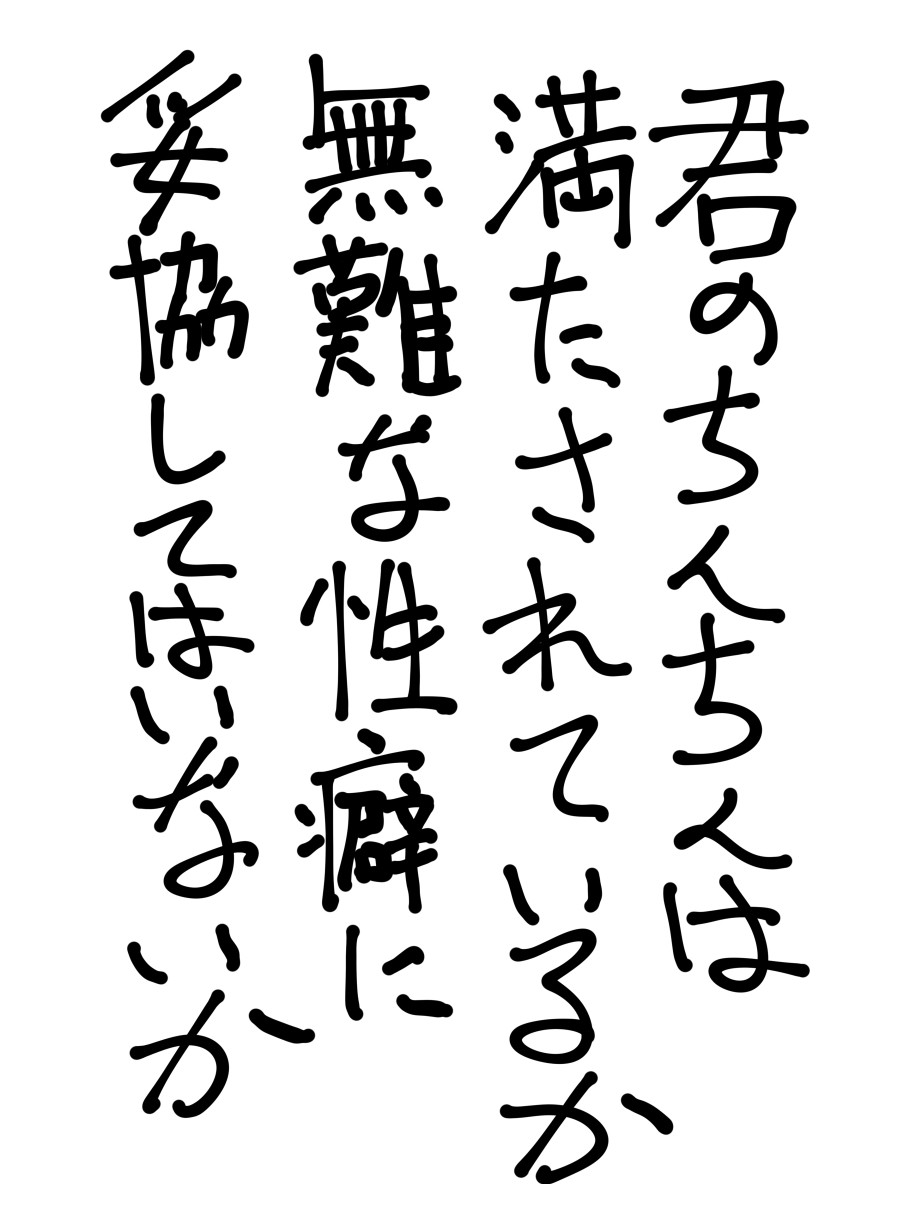 君のちんちんは
満たされているか
無難な性癖に
妥協してはいないか